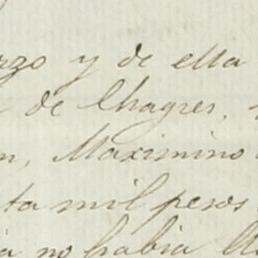 rzo y de ella
de Chagres,
n, Maximino
ta mil pesos
ia no habia